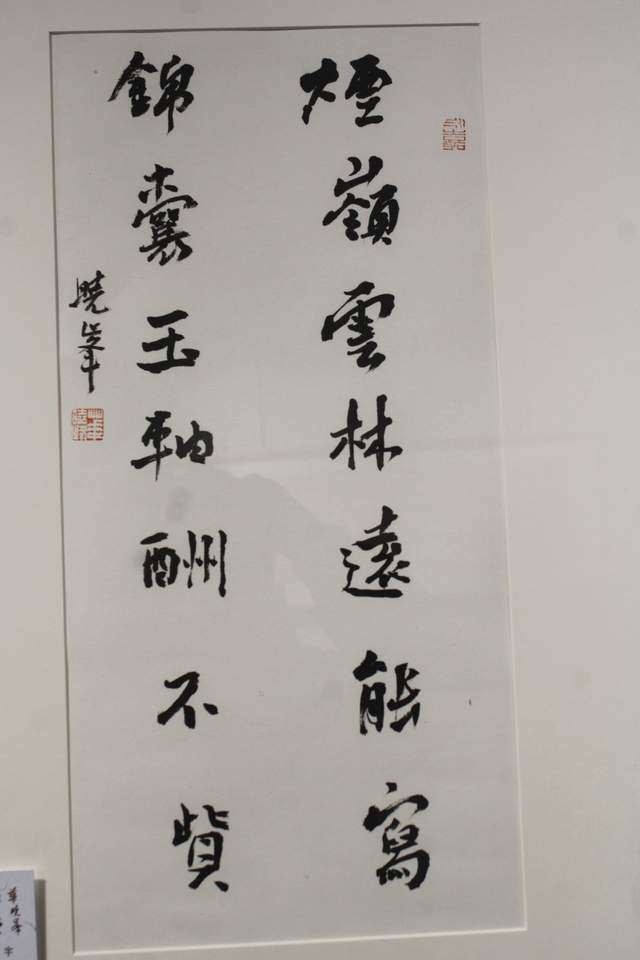 煙嶺雲林遠能寫
錦囊玉軸酬不貲
曉峯